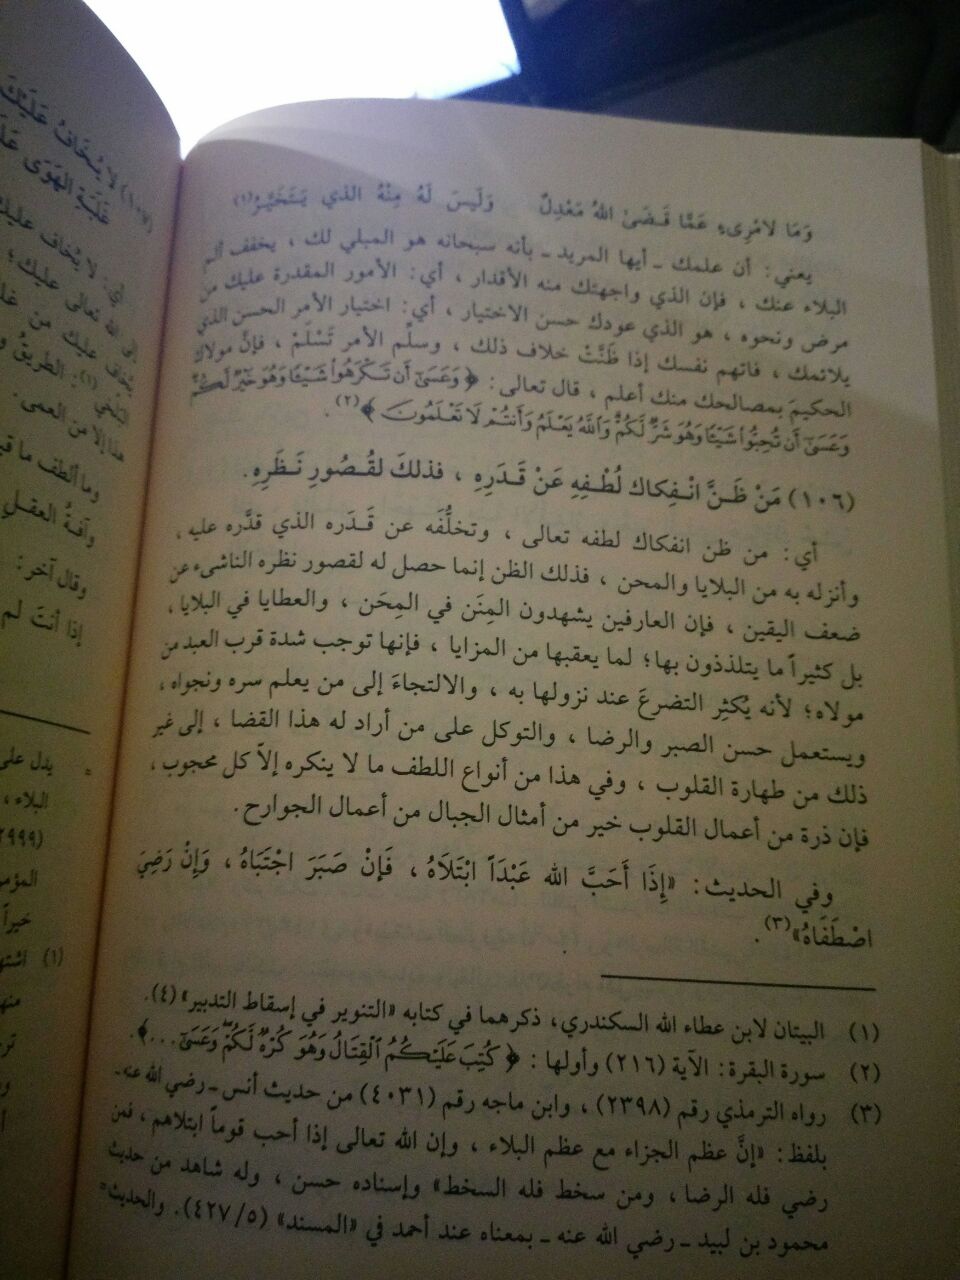 وَمَا لامْرِىءٍ عَمَّا قَضَىٰ اللهُ مَعْدِلٌ وَلَيْسَ لَهُ مِنْهُ الذي يَتَخَيَّرُ(١)
يعني: أن علمك ـ أيها المريد ـ بأنه سبحانه هو المبلي لك ، يخفف ألم
البلاء عنك ، فإن الذي واجهتك منه الأقدار ، أي: الأمور المقدرة عليك من
مرض ونحوه ، هو الذي عودك حسن الاختيار ، أي: اختيار الأمر الحسن الذي
يلائمك ، فاتهم نفسك إذا ظَنَّتْ خلاف ذلك ، وسلِّم الأمر تَسْلَمْ ، فإنَّ مولاك
الحكيمَ بمصالحك منك أعلم ، قال تعالى: ﴿ وَعَسَىٰٓ أَن تَكْرَهُوا۟ شَيْـًٔا وَهُوَ خَيْرٌ لَّكُمْ
وَعَسَىٰٓ أَن تُحِبُّوا۟ شَيْـًٔا وَهُوَ شَرٌّ لَّكُمْ وَاللَّهُ يَعْلَمُ وَأَنتُمْ لَا تَعْلَمُونَ ﴾(٢).
(١٠٦) مَنْ ظَنَّ انْفِكاك لُطْفِهِ عَنْ قَدَرِهِ ، فذلكَ لقُصُورِ نَظَرِهِ.
أي: من ظن انفكاك لطفه تعالى ، وتخلُّفَه عن قَدَره الذي قدَّره عليه ،
وأنزله به من البلايا والمحن ، فذلك الظن إنما حصل له لقصور نظره الناشىء عن
ضعف اليقين ، فإن العارفين يشهدون المِنَن في المِحَن ، والعطايا في البلايا ،
بل كثيراً ما يتلذذون بها؛ لما يعقبها من المزايا ، فإنها توجب شدة قرب العبد من
مولاه؛ لأنه يُكثِر التضرعَ عند نزولها به ، والالتجاءَ إلى من يعلم سره ونجواه ،
ويستعمل حسن الصبر والرضا ، والتوكل على من أراد له هذا القضا ، إلى غير
ذلك من طهارة القلوب ، وفي هذا من أنواع اللطف ما لا ينكره إلاّ كل محجوب ،
فإن ذرة من أعمال القلوب خير من أمثال الجبال من أعمال الجوارح.
وفي الحديث: «إِذَا أَحَبَّ الله عَبْدَاً ابْتَلَاهُ ، فَإِنْ صَبَرَ اجْتَبَاهُ ، وَإِنْ رَضِيَ
اصْطَفَاهُ»(٣).
(١) البيتان لابن عطاء الله السكندري، ذكرهما في كتابه «التنوير في إسقاط التدبير» (٤).
(٢) سورة البقرة: الآية (٢١٦) وأولها: ﴿ كُتِبَ عَلَيْكُمُ الْقِتَالُ وَهُوَ كُرْهٌ لَّكُمْ وَعَسَىٰٓ...﴾.
(٣) رواه الترمذي رقم (٢٣٩٨) ، وابن ماجه رقم (٤٠٣١) من حديث أنس ـ رضي الله عنه ـ
بلفظ: «إنَّ عظم الجزاء مع عظم البلاء ، وإن الله تعالى إذا أحب قوماً ابتلاهم ، فمن
رضي فله الرضا ، ومن سخط فله السخط» وإسناده حسن ، وله شاهد من حديث
محمود بن لبيد ـ رضي الله عنه ـ بمعناه عند أحمد في «المسند» (٤٢٧/٥). والحديث=
(١٠٧) لا يُخَافُ عَلَيْكَ
غَلَبَةِ الهَوَى
أي: لا يُخاف عليك
إلى الله تعالى عليك؛
يُخاف عليك من
البلخي(١): الطريقُ
هذا إلا من العمى.
وما ألطف ما
وآفةُ العقلِ
وقال آخر:
إذا أنتَ لم
= يدل على
البلاء ،
المؤمن
خيراً
(١)
منها